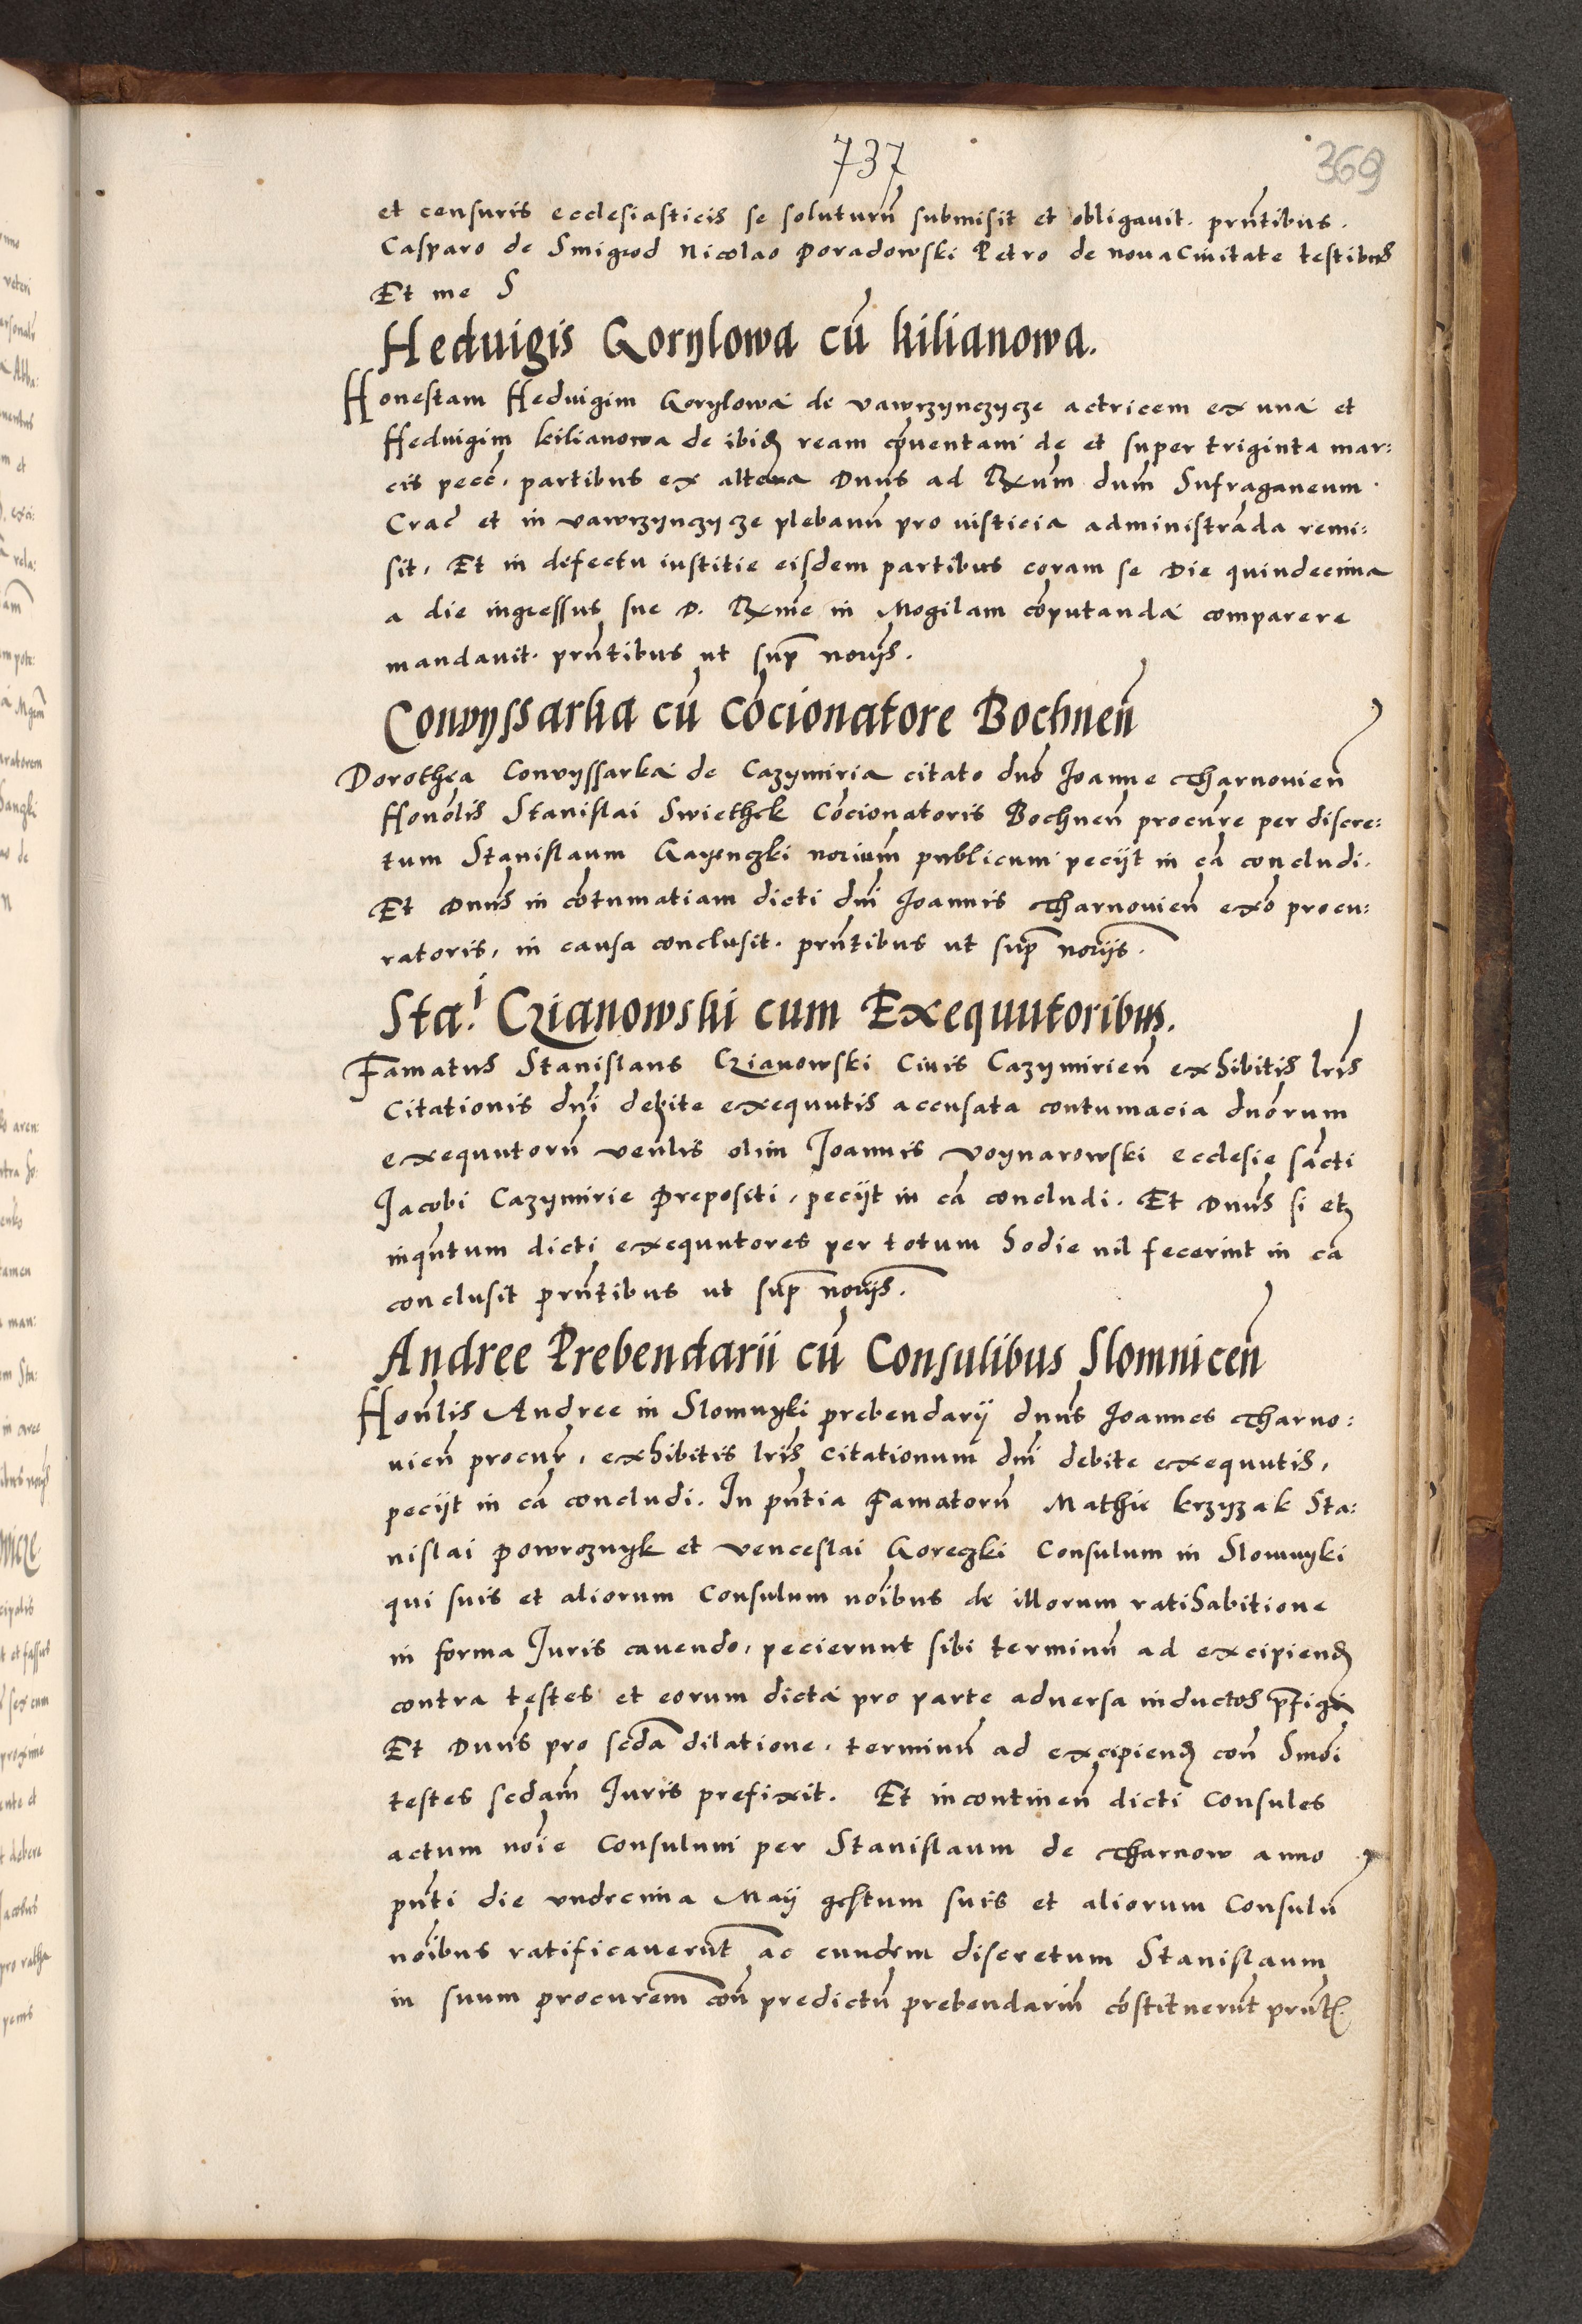 737
369
et censuris ecclesiasticis se soluturū submisit et obligavit. prn̄tibus.
Casparo de Smigrod Nicolao Poradowski Petro de nova Civitate testibus
Et me S
Heduigis Gorylowa cū kilianowa.
Honestam Heduigim Gorylowa de vawrzynczycze actricem ex una et
Heduigim kilianowa de ibid ream conventam de et super triginta mar:
cis pecc. partibus ex altera Dnūs ad Rx̄um dnm̄ Sufraganeum
Crac et in vawrzynczycze plebanū pro iusticia administrāda remi:
sit, Et in defectu iustitie eisdem partibus coram se Die quindecima
a die ingressus sue D. Rxm̄e in Mogilam cōputanda comparere
mandavit. prn̄tibus ut sup̄ noriis.
Convyssarka cū cōcionatore Bochnen̄
Dorothea Convyssarka de Cazymiria citato dnō Joanne Tharnovien̄
Honōlis Stanislai Swiethek Cōcionatoris Bochnen̄ procure per discre:
tum Stanislaum Gayenczki norium publicum peciit in cā concludi.
Et Dnūs in cōtumatiam dicti dnī Joannis Tharnovien̄ exō procu:
ratoris, in causa conclusit. prn̄tibus ut sup̄ noriis.
Sta.i Czianowski cum Exequutoribus.
Famatus Stanislaus Czianowski Civis Cazymirien̄ exhibitis lrīs
Citationis dnī debite exequutis accusata contumacia duōrum
exequutorū venl̄is olim Joannis Voynarowski ecclesie sāncti
Jacobi Cazymirie Prepositi, peciit in cā concludi. Et Dnūs si et
inqn̄tum dicti exequutores per totum hodie nil fecerint in cā
conclusit prn̄tibus ut sup̄ noriis.
Andree Prebendarii cū Consulibus Slomnicen̄
Honl̄is Andree in Slomnyki prebendarii dnūs Joannes Tharno:
vien̄ procur̄, exhibitis lrīs citationum dnī debite exequutis,
peciit in cā concludi. In pn̄tia Famatorū Mathie krzyzak Sta:
nislai Powroznyk et venceslai Goreczki Consulum in Slomnyki
qui suis et aliorum Consulum noībus de illorum ratihabitione
in forma Juris cavendo, pecierunt sibi terminū ad excipiend
contra testes et eorum dicta pro parte adversa inductos p̄figi
Et Dnūs pro scd̄a dilatione, terminū ad excipiend con̄ hmōi
testes scd̄am Juris prefixit. Et incontinen̄ dicti Consules
actum noīe Consulum per Stanislaum de Tharnow anno
pn̄ti die undecima Maii gestum suis et aliorum Consulū
noībus ratificaverūt ac eundem discretum Stanislaum
in suum procurem̄ con̄ predictū prebendariū cōstituerūt prn̄t.